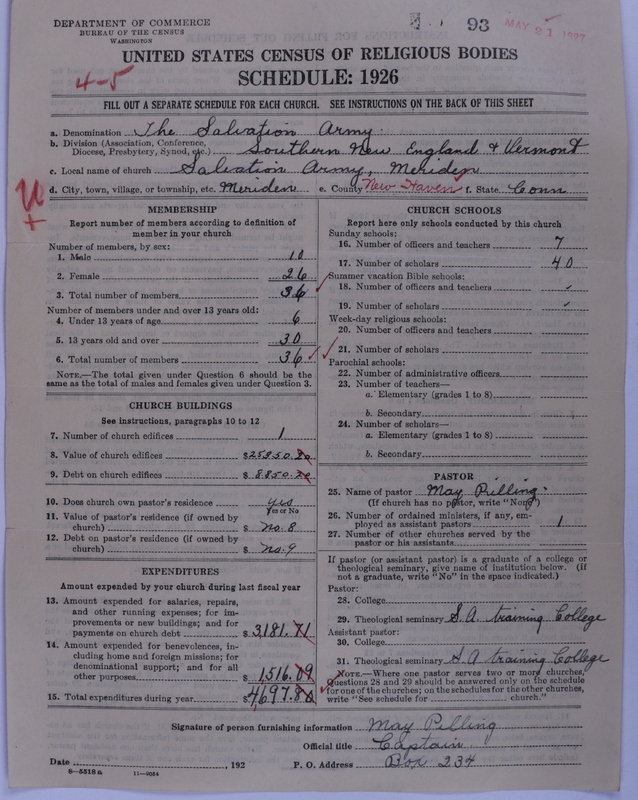 DEPARTMENT OF COMMERCE
BUREAU OF THE CENSUS
WASHINGTON
93
MAY 21 1927
UNITED STATES CENSUS OF RELIGIOUS BODIES
4-5
SCHEDULE: 1926
FILL OUT A SEPARATE SCHEDULE FOR EACH CHURCH. SEE INSTRUCTIONS ON THE BACK OF THIS SHEET
a. Denomination The Salvation Army
b. Division (Association, Conference, Diocese, Presbytery, Synod, etc.) Southern New England & Vermont
c. Local name of church Salvation Army, Meriden
d. City, town, village, or township, etc. Meriden e. County New Haven f. State Conn
MEMBERSHIP
Report number of members according to definition of
member in your church
Number of members, by sex:
1. Male 10
2. Female 26
3. Total number of members 36
Number of members under and over 13 years old:
4. Under 13 years of age 6
5. 13 years old and over 30
6. Total number of members 36
NOTE.—The total given under Question 6 should be
same as the total of males and females given under Question 3.
CHURCH BUILDINGS
See instructions, paragraphs 10 to 12
7. Number of church edifices 1
8. Value of church edifices $25950.
9. Debt on church edifices $8850.
10. Does church own pastor's residence yes
Yes or No
11. Value of pastor's residence (if owned by
church) $ No. 8
12. Debt on pastor's residence (if owned by
church) $ No. 9
EXPENDITURES
Amount expended by your church during last fiscal year
13. Amount expended for salaries, repairs,
and other running expenses; for im-
provements or new buildings; and for
payments on church debt $3,181.71
14. Amount expended for benevolences, in-
cluding home and foreign missions; for
denominational support; and for all
other purposes $1516.09
15. Total expenditures during year $4,697.80
CHURCH SCHOOLS
Report here only schools conducted by this church
Sunday schools:
16. Number of officers and teachers 7
17. Number of scholars 40
Summer vacation Bible schools:
18. Number of officers and teachers
19. Number of scholars
Week-day religious schools:
20. Number of officers and teachers
21. Number of scholars
Parochial schools:
22. Number of administrative officers
23. Number of teachers—
a. Elementary (grades 1 to 8)
b. Secondary
24. Number of scholars—
a. Elementary (grades 1 to 8)
b. Secondary
PASTOR
25. Name of pastor May Pilling
(If church has no pastor, write "None")
26. Number of ordained ministers, if any, em-
ployed as assistant pastors 1
27. Number of other churches served by the
pastor or his assistants
If pastor (or assistant pastor) is a graduate of a college or
theological seminary, give name of institution below. (If
not a graduate, write "No" in the space indicated.)
Pastor:
28. College
29. Theological seminary S.A. training College
Assistant pastor:
30. College
31. Theological seminary S.A training College
NOTE.—Where one pastor serves two or more churches,
Questions 28 and 29 should be answered only on the schedule
for one of the churches; on the schedules for the other churches,
write "See schedule for church."
Signature of person furnishing information May Pilling
Official title Captain
Date , 192 P. O. Address Box 234
8—5518 a 11—9054